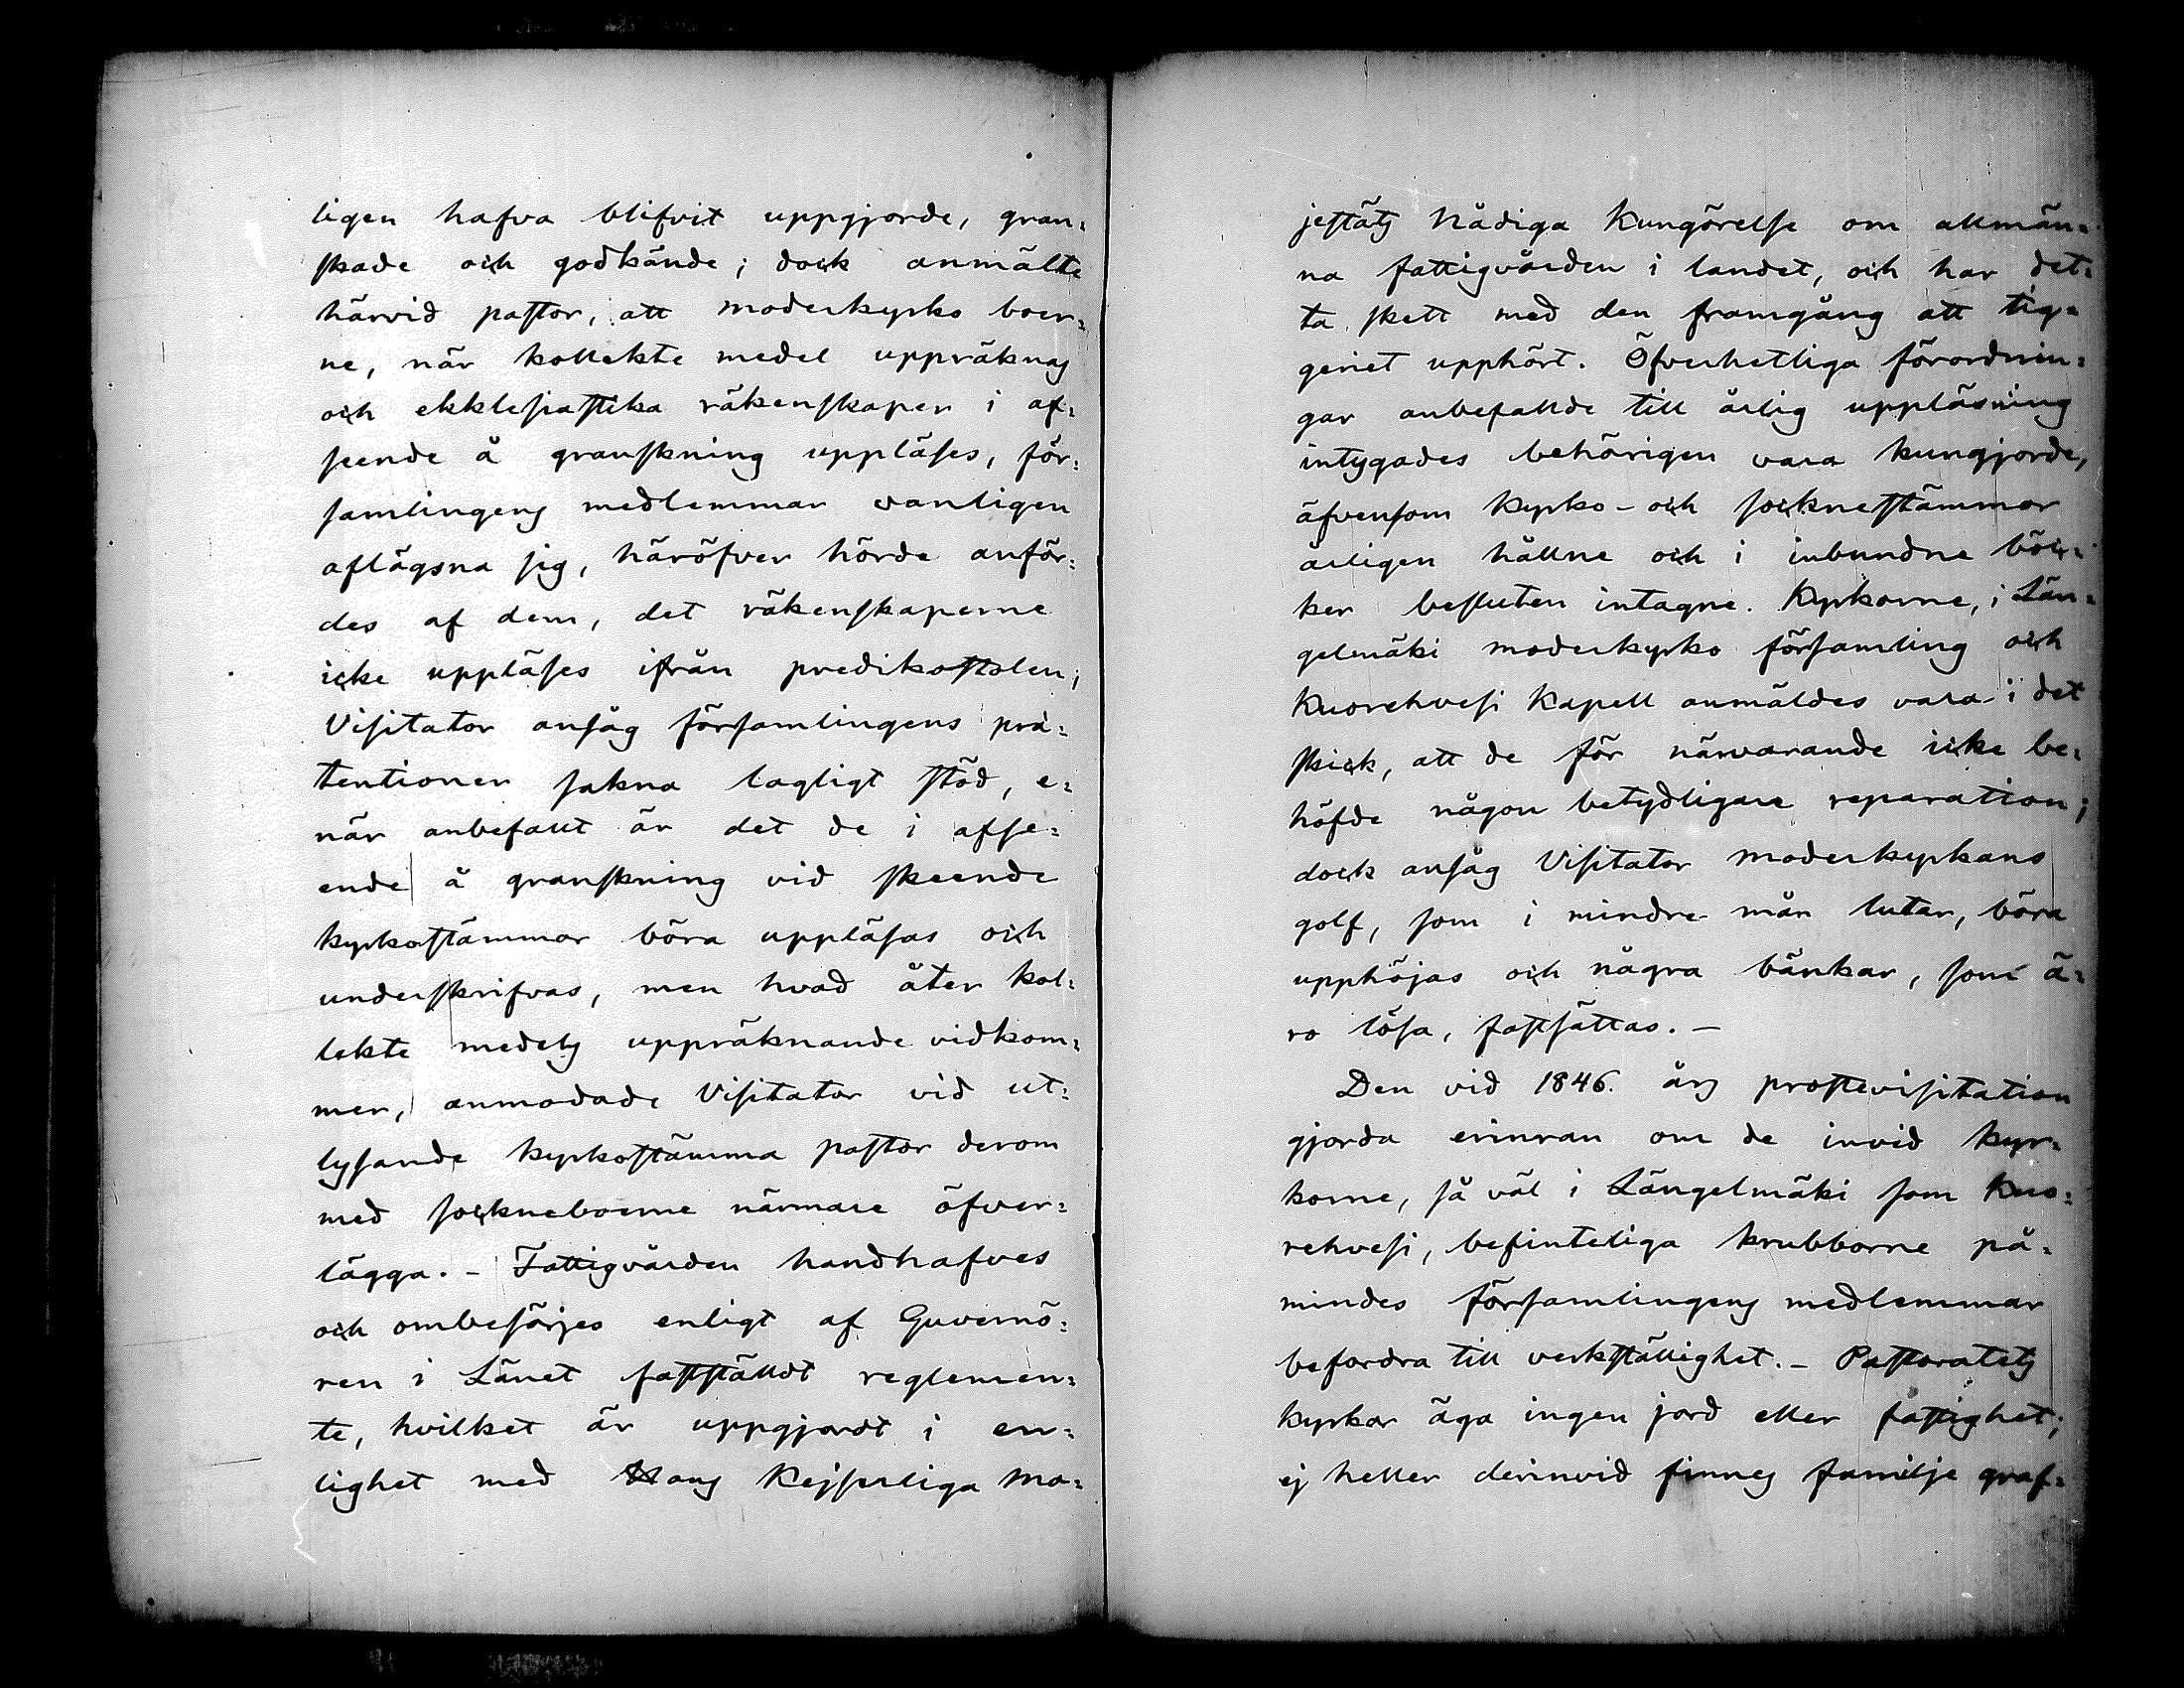 ligen hafva blifvit uppgjorde, gran=
skade och godkände; dock anmälte
härvid pastor, att moderkyrko boer=
ne, när kollekte medel uppräknas
och ekklesiastika räkenskaper i af=
seende å granskning uppläses, för=
samlingens medlemmar vanligen
aflägsna sig, häröfver hörde anför=
des af dem, det räkenskaperne
icke uppläses ifrån predikostolen;
Visitator ansåg församlingens prä=
tentioner sakna lagligt stöd, e=
när anbefallt är det de i afse=
ende å granskning vid skeende
kyrkostämmor böra uppläsas och
underskrifvas, men hvad åter kol=
lekte medels uppräknande vidkom=
mer, anmodade Visitator vid ut=
lysande kyrkostämma pastor derom
med sockneboerne närmare öfver=
lägga. – Fattigvården handhafves
och ombesörjes enligt af Guvernö=
ren i Länet faststäldt reglemen=
te, hvilket är uppgjordt i en=
lighet med Hans Kejserliga Ma=
jestäts Nådiga Kungörelse om allmän=
na fattigvården i landet, och har det=
ta skett med den framgång att tig=
geriet upphört. Öfverhetliga förordnin=
gar anbefallde till årlig uppläsning
intygades behörigen vara kungjorde,
äfvensom kyrko- och socknestämmor
årligen hållne och i inbundne böc=
ker besluten intagne. Kyrkorne, i Län=
gelmäki moderkyrko församling och
Kuorehvesi Kapell anmäldes vara i det
skick, att de för närvarande icke be=
höfde någon betydligare reparation;
dock ansåg Visitator moderkyrkans
golf, som i mindre mån lutar, böra
upphöjas och några bänkar, som ä=
ro lösa, fastsättas. –
Den vid 1846. års prostevisitation
gjorda erinran om de invid kyr=
korne, så väl i Längelmäki som Kuo=
rehvesi, befinteliga krubborne på=
mindes församlingens medlemmar
befordra till verkställighet. – Pastoratets
kyrkor äga ingen jord eller fastighet;
ej heller derinvid finnes familje graf=